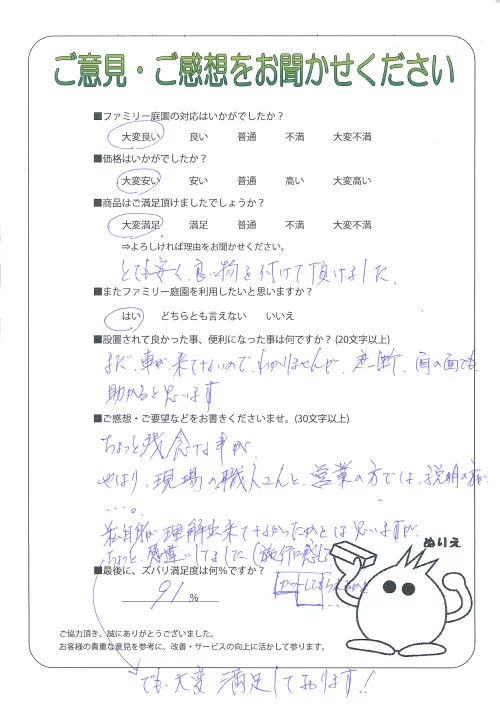 ご意見・ご感想をお聞かせください
■ファミリー庭園の対応はいかがでしたか？
大変良い 良い 普通 不満 大変不満
■価格はいかがでしたか？
大変安い 安い 普通 高い 大変高い
■商品はご満足頂けましたでしょうか？
大変満足 満足 普通 不満 大変不満
⇒よろしければ理由をお聞かせください。
とても安く、良い物を付けて頂けました。
■またファミリー庭園を利用したいと思いますか？
はい どちらとも言えない いいえ
■設置されて良かった事、便利になった事は何ですか？(20文字以上)
まだ、車が来てないので、わかりませんが、 雨の面でも
助かると思います
■ご感想・ご要望などをお書きくださいませ。(30文字以上)
ちょっと残念な事が
やはり、現場の職人さんと、営業の方では、説明の方が
…。
私自身が理解出来てなかったかとは思いますが、
ちょっと、感違いしてました(施行に感して
■最後に、ズバリ満足度は何％ですか？
91 %
ぬりえ
ご協力頂き、誠にありがとうございました。
お客様の貴重な意見を参考に、改善・サービスの向上に活かして参ります。
でも、大変 満足しております!!